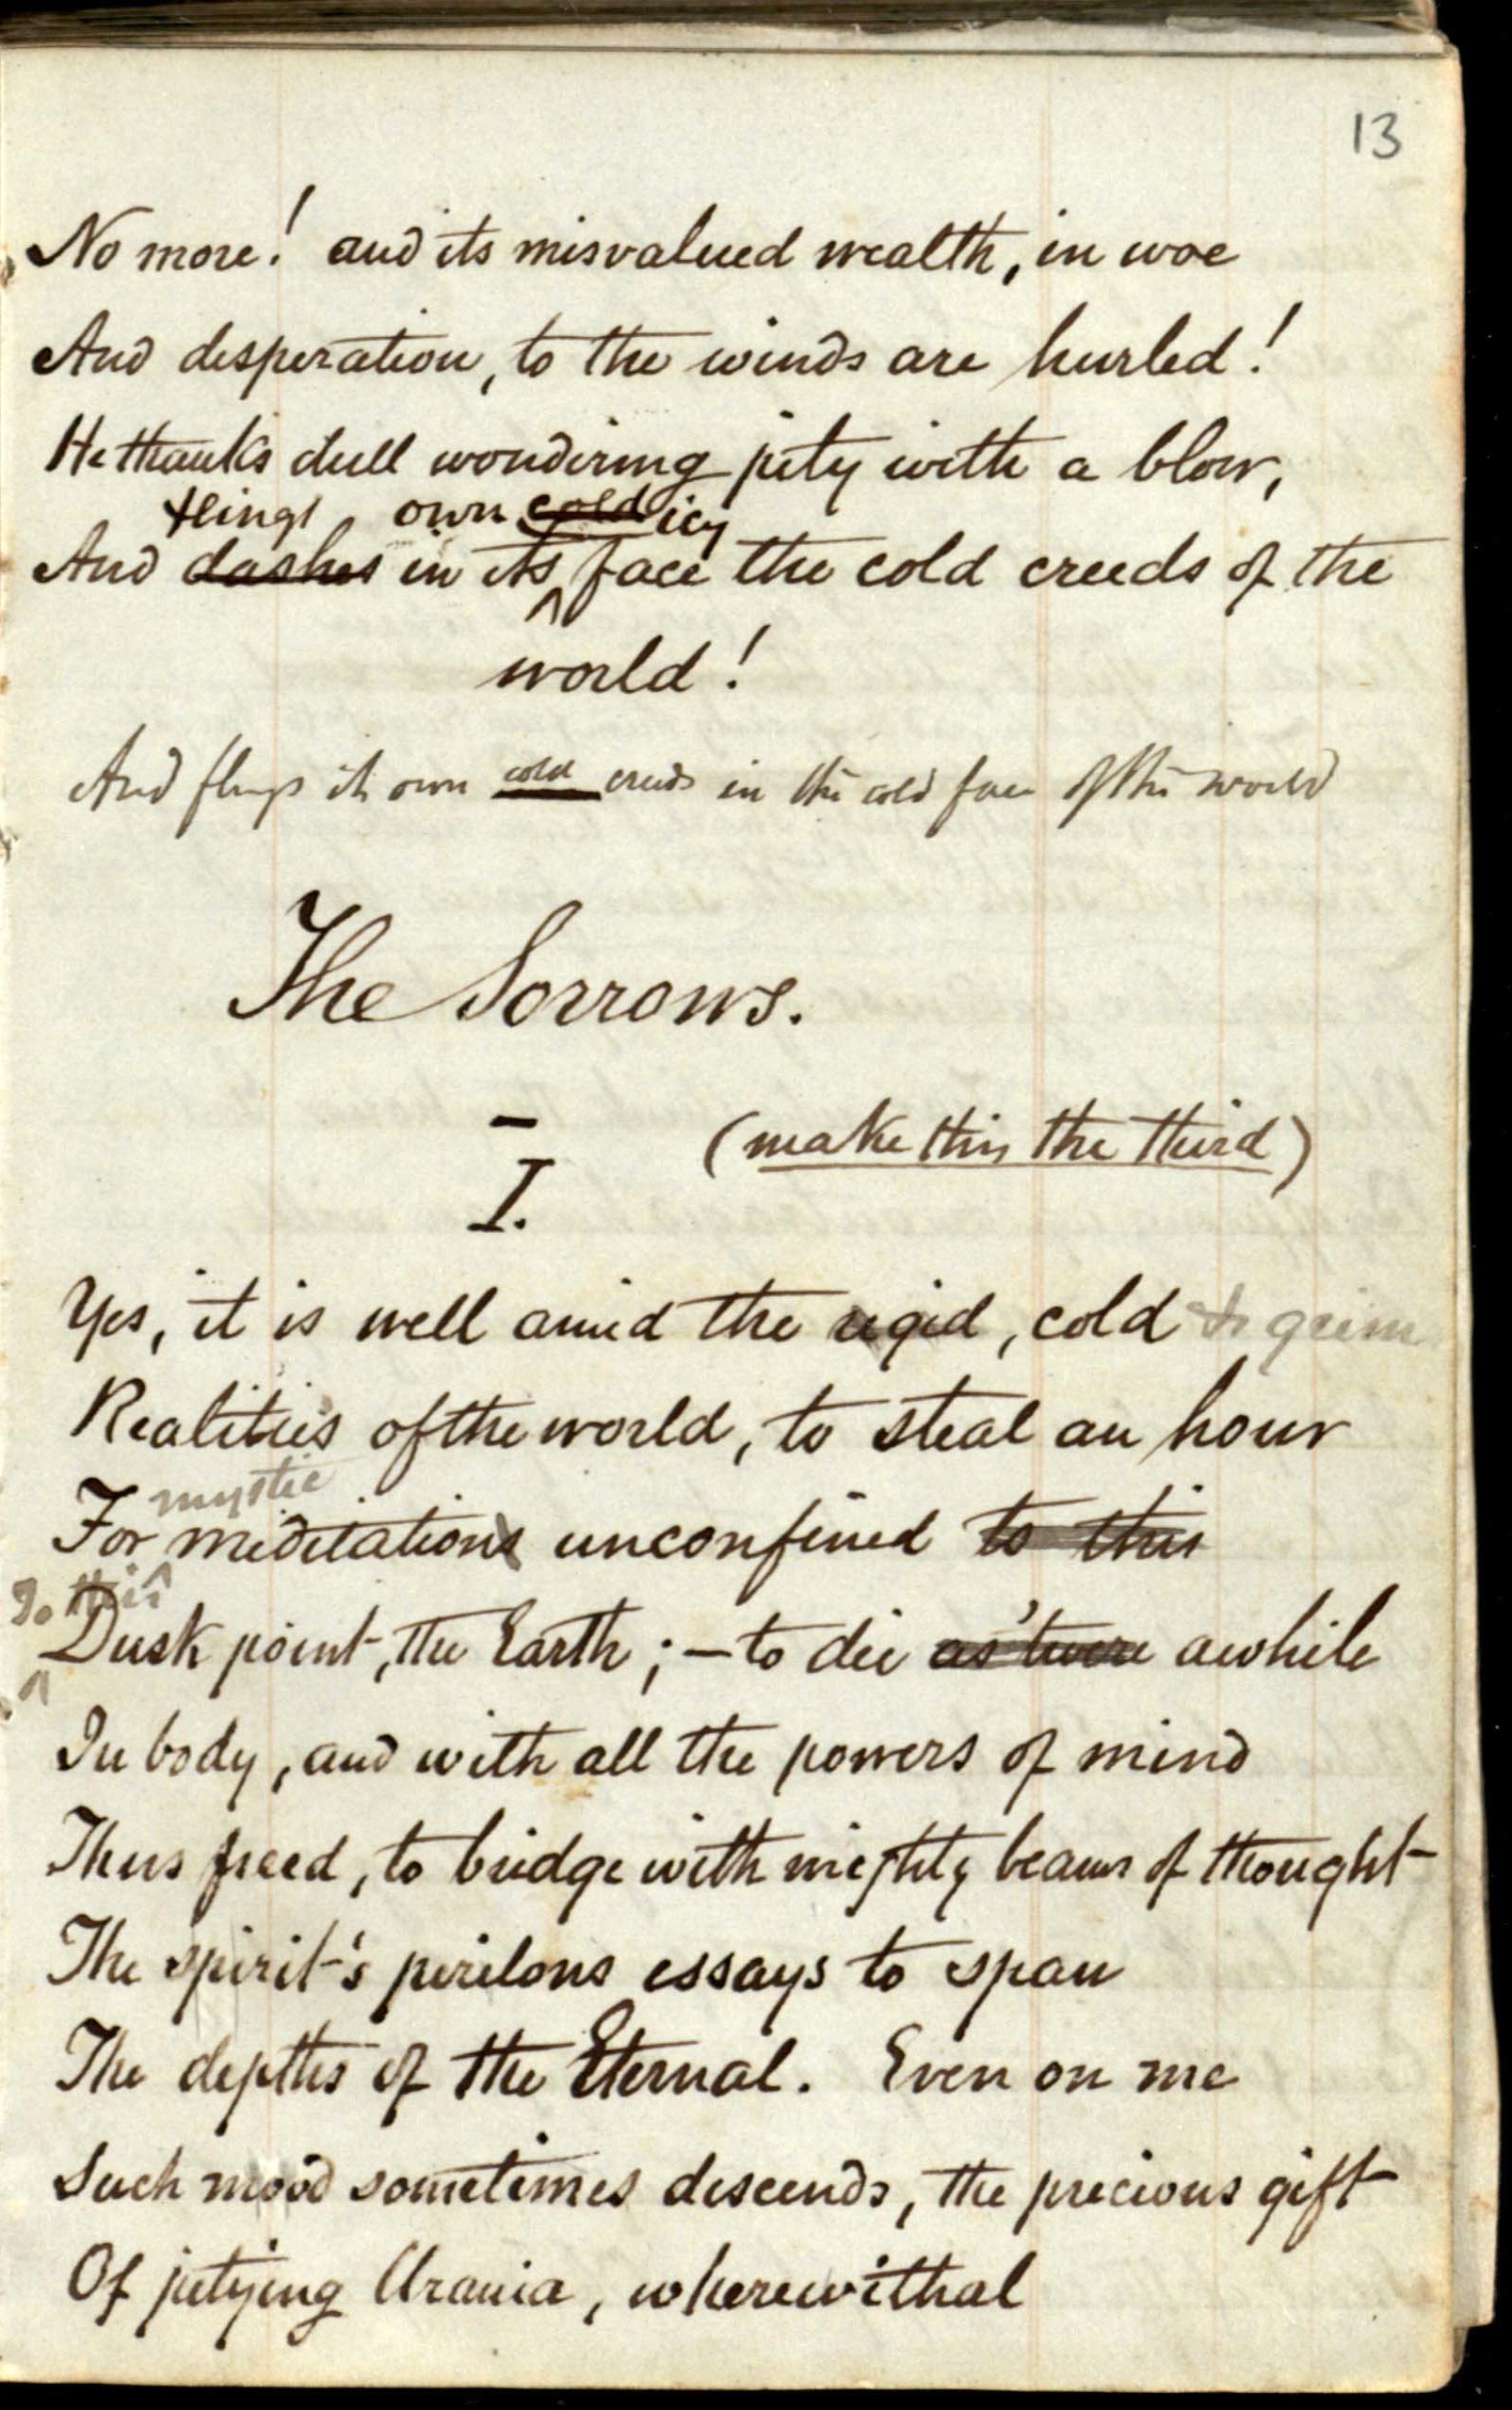 13
No more! and its misvalued wealth, in woe
And desperation, to the winds are hurled!
He thanks dull wondering pity with a blow,
flings own cold icy
And dashes in its face the cold creeds of the
world!
And flings its own cold creeds in the cold face of the world
The Sorrows.
I. (make this the third)
Yes, it is well amid the rigid, cold & grim
Realities of the world, to steal an hour
mystic
For meditations unconfined to this
To this
Dusk point, the Earth; – to die as 'twere awhile
In body, and with all the powers of mind
Thus freed, to bridge with mighty beams of thought
The spirit's perilous essays to span
The depths of the Eternal. Even on me
Such mood sometimes descends, the precious gift
Of pitying Urania, wherewithal